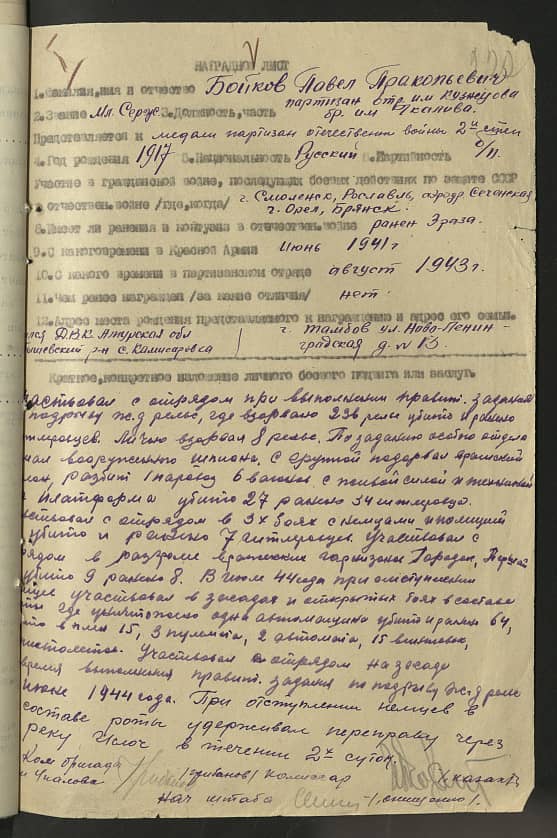 120
НАГРАДНОЙ ЛИСТ
1. Фамилия, имя и отчество Бойков Павел Пракопьевич
партизан отр. им Кузнецова
2. Звание Мл. Серж. 3. Должность, часть бр. им Чкалова.
Представляется к медали партизан отечествен войны 2й степ
4. Год рождения 1917 5. Национальность Русский 6. Партийность б/п.
Участие в гражданской войне, последующих боевых действиях по защите СССР
и отечествен. войне /где, когда/ г. Смоленск, Рославль,
г. Орел, Брянск.
8. Имеет ли ранения и контузии в отечествен. войне ранен 3 раза.
9. С какого времени в Красной Армии Июнь 1941 г
10. С какого времени в партизанском отряде август 1943 г.
11. Чем ранее награжден /за какие отличия/ нет
12. Адрес места рождения представляемого к награждению и адрес его семьи.
Д.В.К. Амурская обл г. Тамбов ул. Ново-Ленин-
р-н с. Камисаровка градская д. № 13.
Краткое, конкретное изложение личного боевого подвига или заслуг.
аствовал с отрядом при выполнении правит. задания
подрыву ж.д рельс, где взорвано 236 рельс убито и ранено
итлеровцев. Лично взорвал 8 рельс. По заданию особого отдела
мал вооруженного шпиона. С группой подорвал вражеский
лон, разбит 1 паровоз 6 вагонов с живой силой и техникой
и платформа убито 27 ранено 34 гитлеровца.
вствовал с отрядом в 3х боях с немцами и полицией
убито и ранено 7 гитлеровцев. Участвовал с
рядом в разгроме вражеских гарнизонов Городок,
убито 9 ранено 8. В июле 44 года при отступлении
мцев участвовал в засадах и открытых боях в составе
ты где уничтожено одна автомашина убито и ранено 64,
то в плен 15, 3 пулемета, 2 автомата, 15 винтовок,
пистолетов. Участвовал с отрядом на засаде
время выполнения правит. задания по подрыву ж.д рельс
июне 1944 года. При отступлении немцев в
составе роты удерживал переправу через
реку Ислоч в течении 2х суток.
Ком бригады
м Чкалова /Грибанов/ Комиссар /Казак/
Нач штаба /Онищенко/.